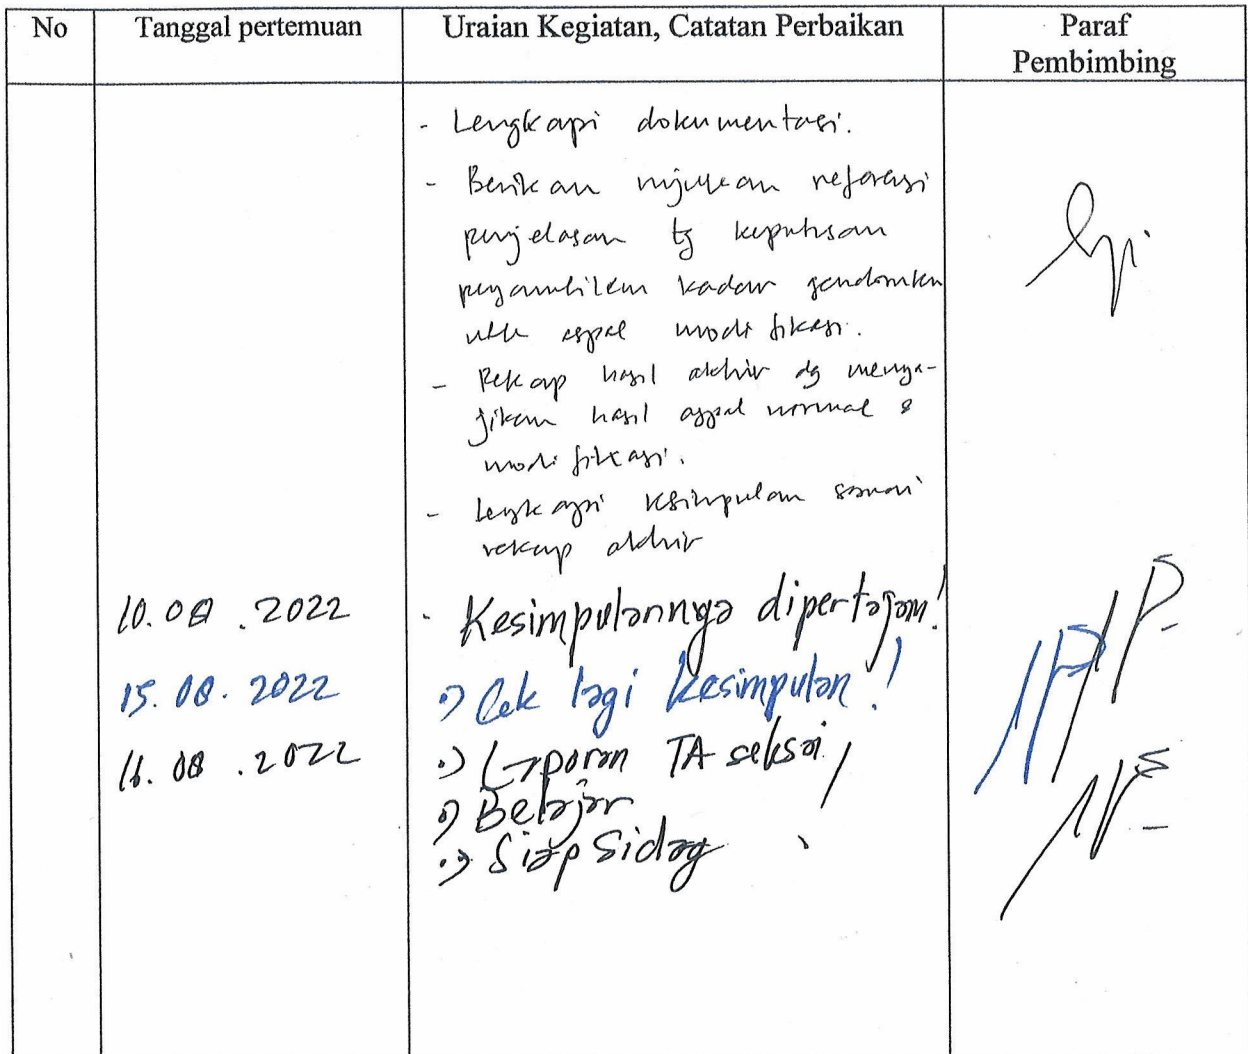 No Tanggal pertemuan Uraian Kegiatan, Catatan Perbaikan Paraf
Pembimbing
- Lengkapi dokumentasi.
- Berikan rujukan referensi
penjelasan tg keputusan
pengambilan kadar gondorukem
utk aspal modifikasi.
- Rekap hasil akhir dg menya-
jikan hasil aspal normal &
modifikasi.
- Lengkapi kesimpulan sesuai
rekap akhir
10.08.2022 - Kesimpulannya dipertajam!
15.08.2022 •) Cek lagi kesimpulan!
16.08.2022 •) Laporan TA selsai
•) Belajar
•) Siap Sidag